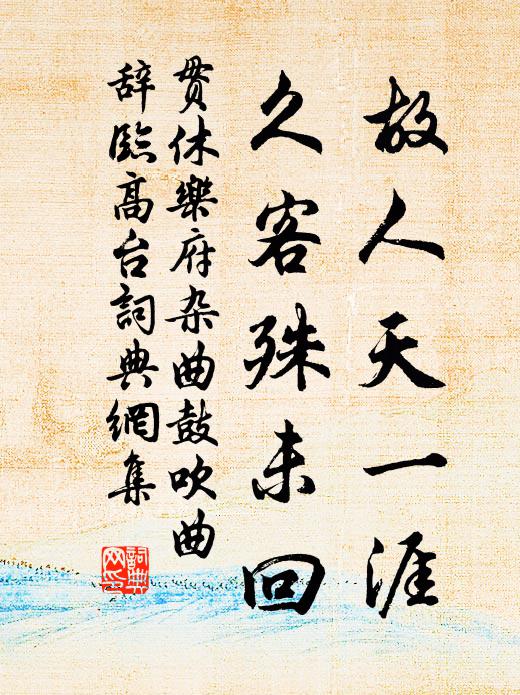 故人天一涯
久客殊未回
贯休樂府杂曲鼓吹曲
辞臨高台詞典網集
詞典网印